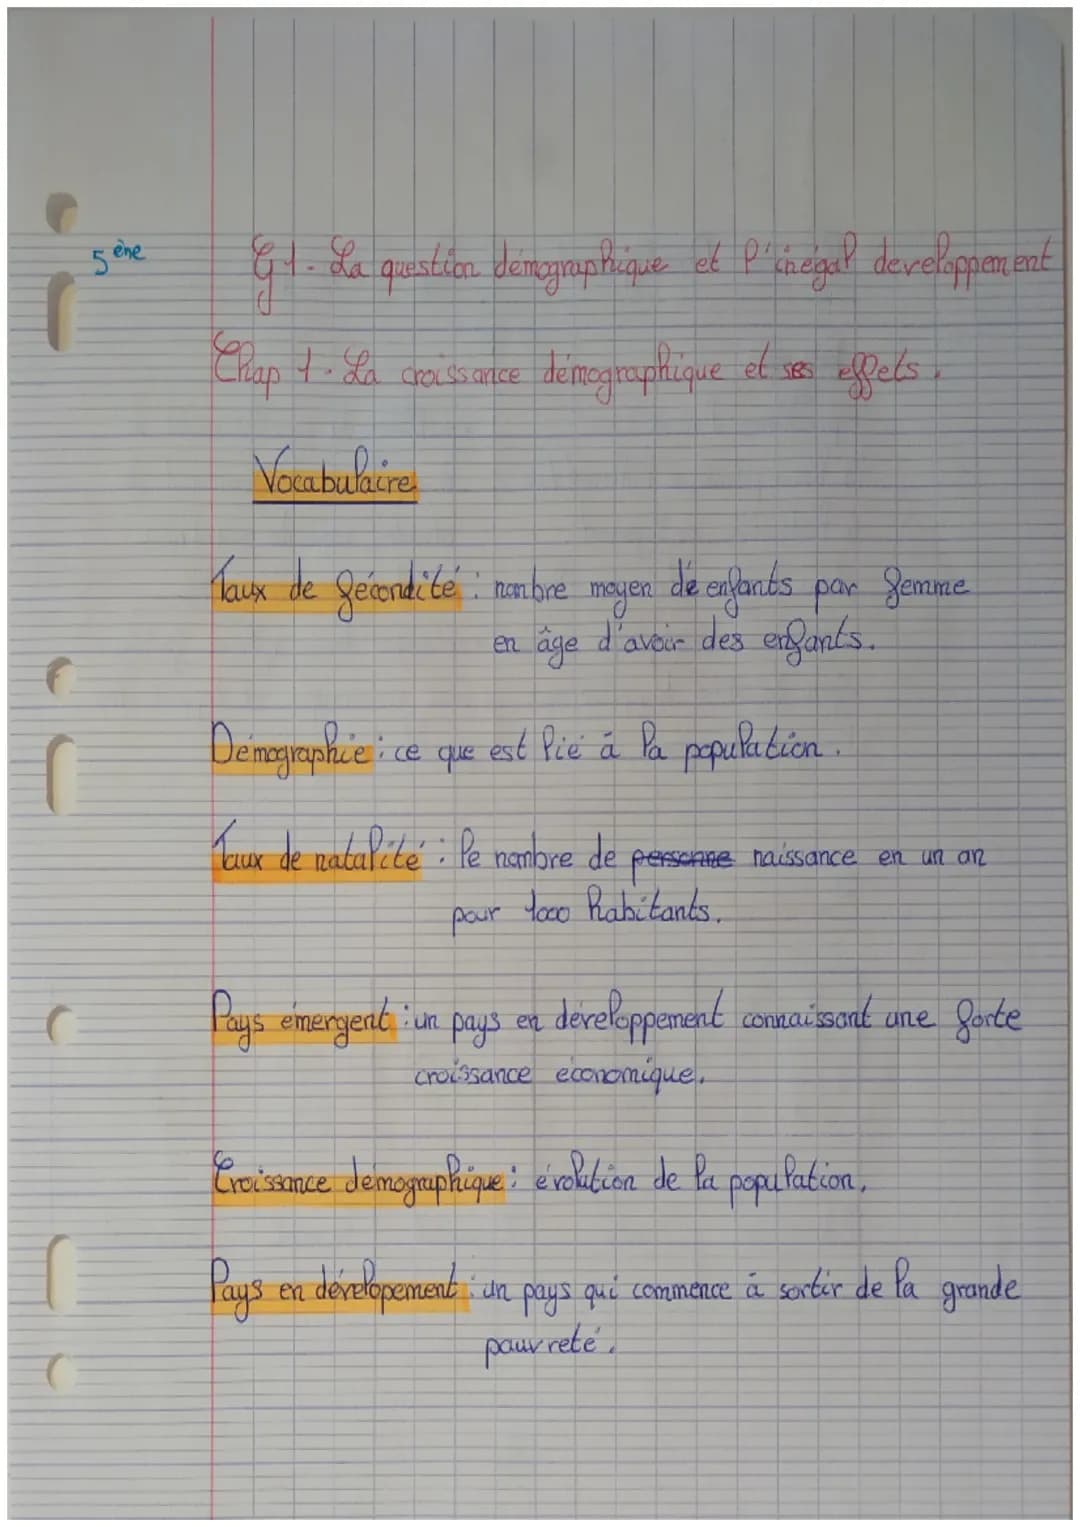 5 ène
G1 - La question démographique et l'inégal developpement
Chap 1 - La croissance démographique et ses effets.
Vocabulaire
Taux de fécondité : nombre moyen de enfants par femme
en âge d'avoir des enfants.
Démographie : ce que est lié à la population.
Taux de natalité : le nombre de personne naissance en un an
pour 1000 habitants.
Pays émergent : un pays en développement connaissant une forte
croissance économique.
Croissance démographique : évolution de la population.
Pays en dévelopement : un pays qui commence à sortir de la grande
pauvreté.